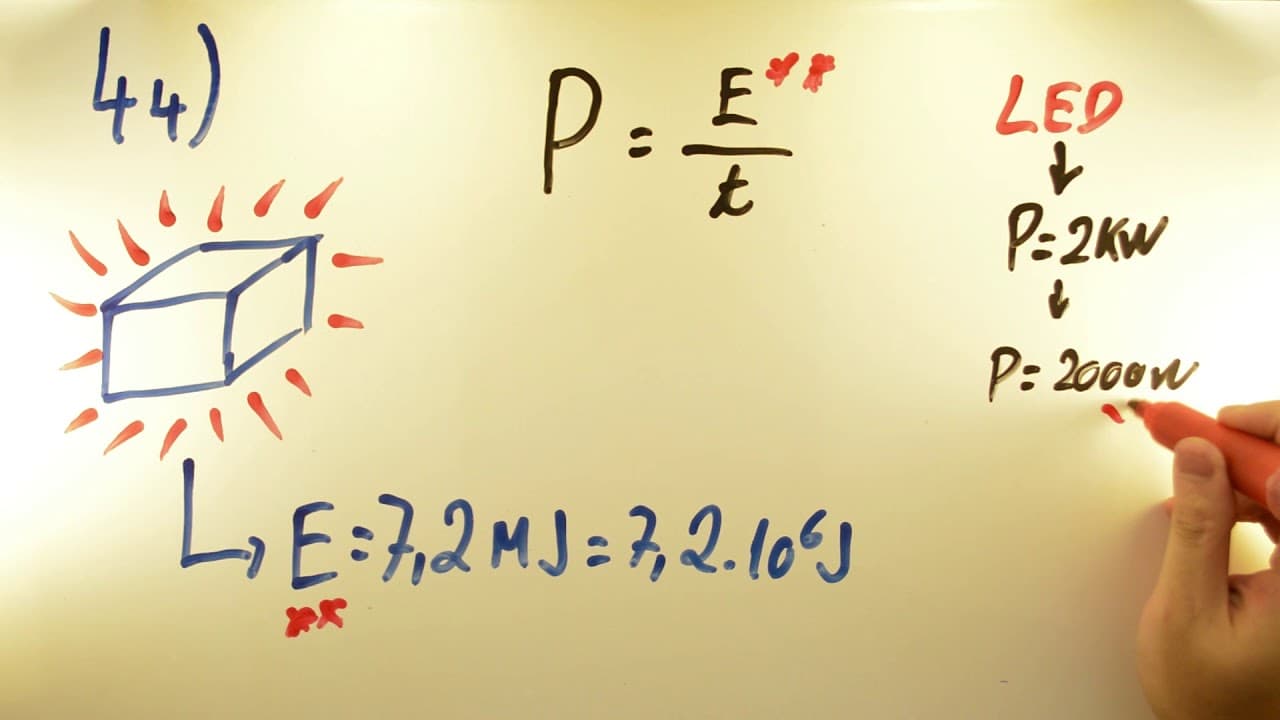 44)
P = E** / t
LED
P=2KW
P=2000W
E=7,2MJ=7,2.10⁶J
**